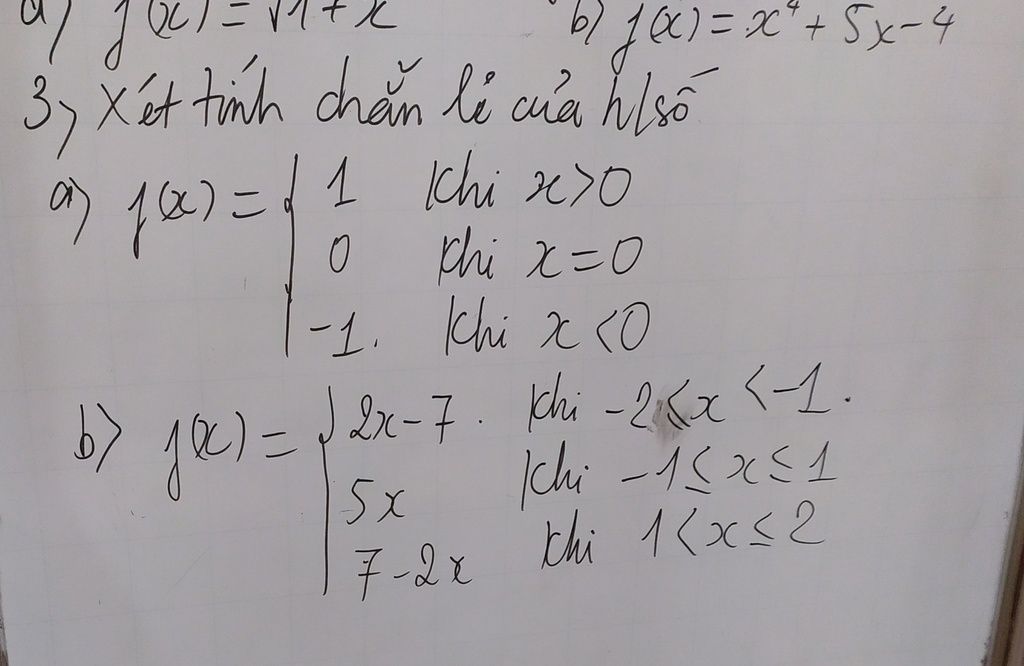 a) f(x) = √1 + x    b) f(x) = x⁴ + 5x - 4
3) Xét tính chẵn lẻ của h/số
a) f(x) = { 1 khi x > 0
0 khi x = 0
-1. khi x < 0
b) f(x) = { 2x - 7. khi -2 < x < -1.
5x khi -1 ≤ x ≤ 1
7 - 2x khi 1 < x ≤ 2